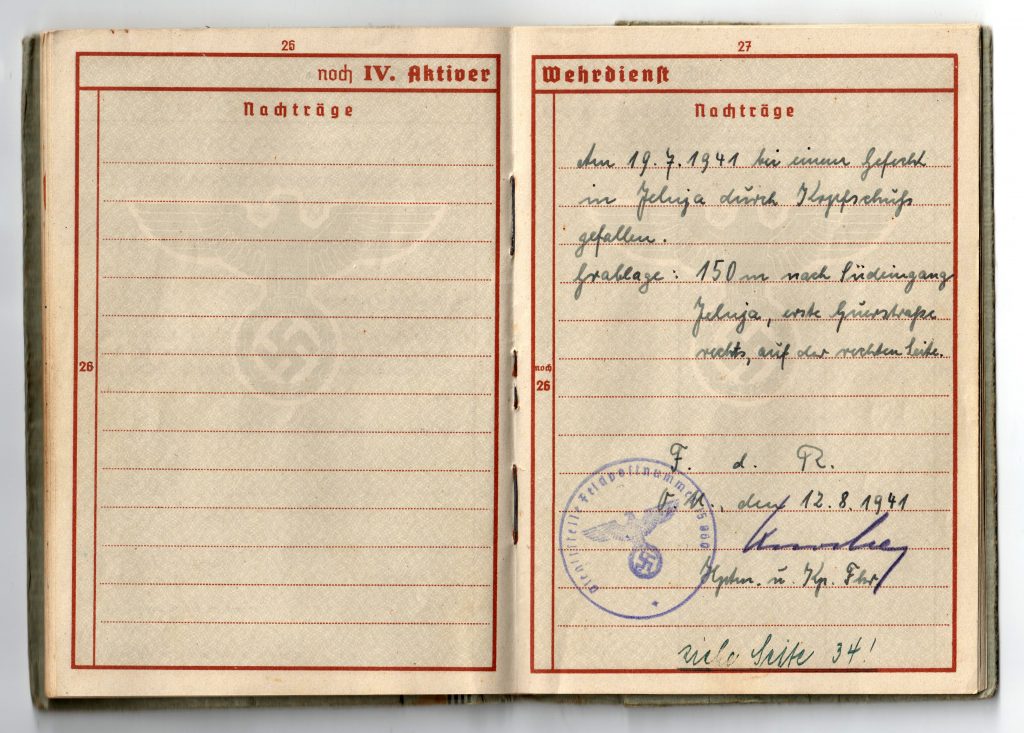 25
noch IV. Aktiver
Nachträge
26
27
Wehrdienst
Nachträge
Am 19.7.1941 bei einem Gefecht
in Jelnja durch Kopfschuß
gefallen.
Grablage: 150 m nach Südeingang
Jelnja, erste Querstraße
rechts, auf der rechten Seite.
noch
26
F. d. R.
O.U., den 12.8.1941
Hptm. u. Kp. Fhr.
Dienststelle Feldpostnummer
siehe Seite 34!